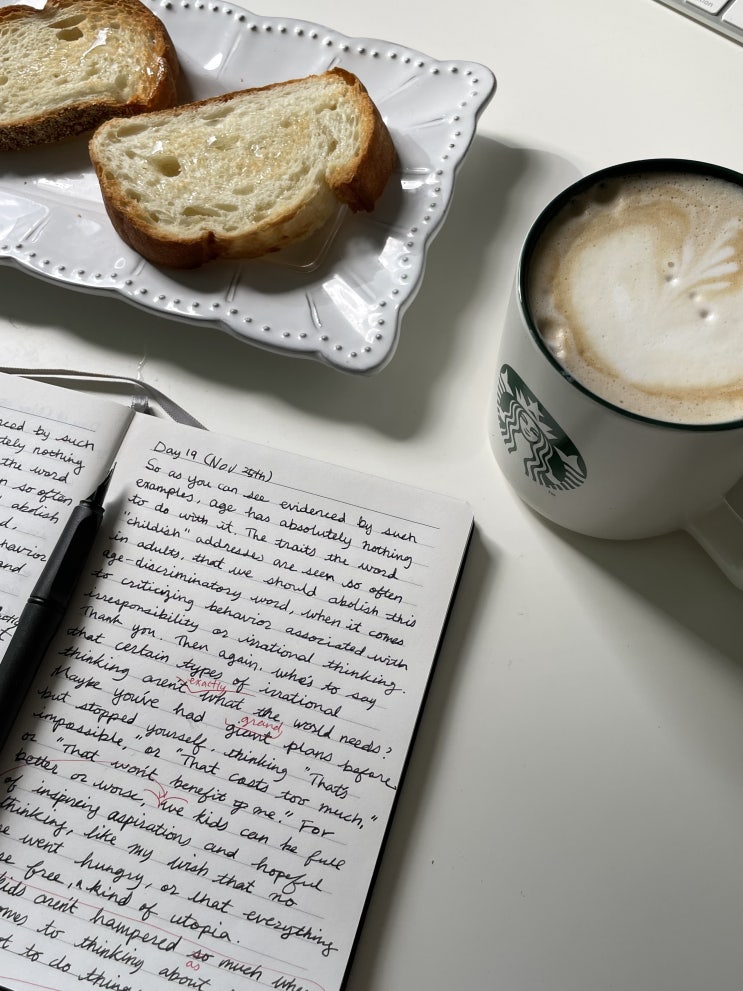 ced by such
tely nothing
the word
n so often
abolish
d,
havior
and
Day 19 (Nov 25th)
So as you can see evidenced by such
examples, age has absolutely nothing
to do with it. The traits the word
"childish" addresses are seen so often
in adults, that we should abolish this
age-discriminatory word, when it comes
to criticizing behavior associated with
irresponsibility or irrational thinking.
Thank you. Then again, who's to say
that certain types of irrational
exactly
thinking aren't what the world needs?
grand
Maybe you've had giant plans before
but stopped yourself, thinking "That's
impossible," or "That costs too much,"
or "That won't benefit me." For
better or worse, we kids can be full
of inspiring aspirations and hopeful
thinking, like my wish that no
e went hungry, or that everything
se free, a kind of utopia.
kids aren't hampered so much when
as
omes to thinking about
t to do thing